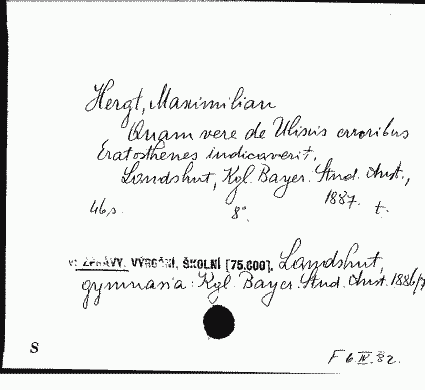 Hergt, Maximilian
Quam vere de Ulixis erroribus
Eratosthenes indicaverit.
Landshut, Kgl. Bayer. Stud. Anst.,
1887.
46 s. 8°. t.
v: ZPRÁVY, VÝROČNÍ, ŠKOLNÍ [75.600]. Landshut,
gymnasia: Kgl. Bayer. Stud. Anst. 1886/7
S
F 6 IV. 82.